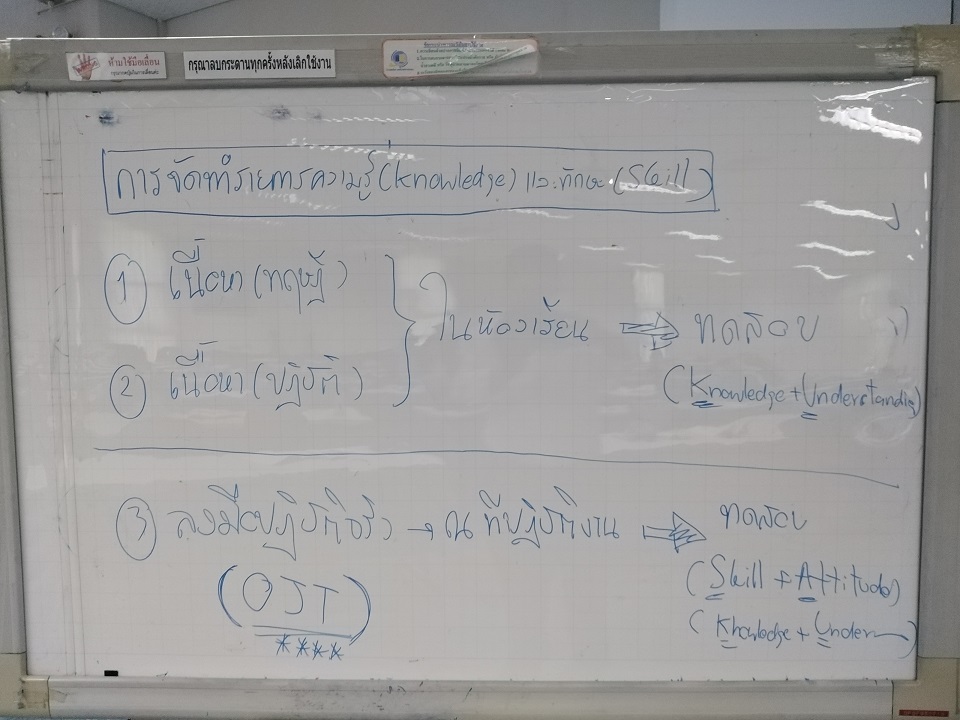 ห้ามใช้มือเลื่อน
กรุณาลบกระดานทุกครั้งหลังเลิกใช้งาน
การจัดทำรายการความรู้ (Knowledge) และทักษะ (Skill)
1 เนื้อหา (ทฤษฎี)
2 เนื้อหา (ปฏิบัติ)
ในห้องเรียน ⇒ ทดสอบ
(Knowledge + Understanding)
3 ลงมือปฏิบัติจริง → ณ ที่ปฏิบัติงาน ⇒ ทดสอบ
(OJT)
****
(Skill + Attitude)
(Knowledge + Under